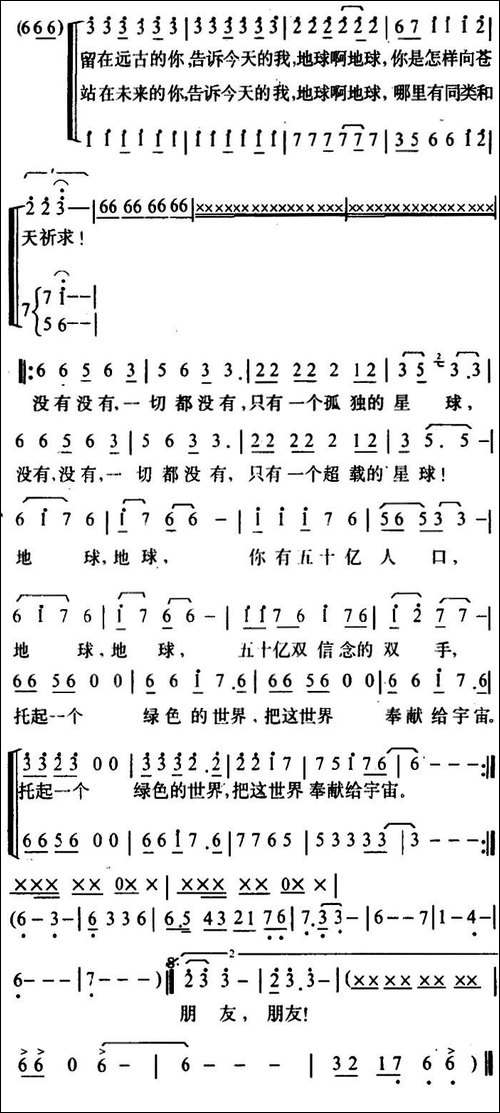 (666) 3 3 3 3 3 3 | 3 3 3 3 3 3 | 2 2 2 2 2 2 | 6 7 1 1 1 2 |
留在远古的你,告诉今天的我,地球啊地球,你是怎样向苍
站在未来的你,告诉今天的我,地球啊地球,哪里有同类和
1 1 1 1 1 1 | 1 1 1 1 1 1 | 7 7 7 7 7 7 | 3 5 6 6 1 2 |
2 2 3 — | 66 66 66 66 | ×××××××××××××××× | ××××××××××××××××
天祈求!
7 { 7 1 - - |
5 6 - - |
‖: 6 6 5 6 3 | 5 6 3 3. | 22 22 2 12 | 3 5 2 3.3 |
没有没有,一切都没有,只有一个孤独的星 球,
6 6 5 6 3 | 5 6 3 3. | 22 22 2 12 | 3 5. 5 - |
没有,没有,一切都没有,只有一个超载的星球!
6 1 7 6 | 1 7 6 6 - | 1 1 1 7 6 | 56 53 3 - |
地 球,地球, 你有五十亿人 口,
6 1 7 6 | 1 7 6 6 - | 11 7 6 1 76 | 1 2 7 7 - |
地 球,地 球, 五十亿双信念的双 手,
66 56 0 0 | 6 6 1 7.6 | 66 56 0 0 | 6 6 1 7.6 |
托起一个 绿色的世界,把这世界 奉献给宇宙。
3323 0 0 | 3332.2 | 2217 | 75176 | 6 - - - :‖
托起一个 绿色的世界,把这世界奉献给宇宙。
6656 0 0 | 6617.6 | 7765 | 53333 | 3 - - - :‖
××× ×× 0× × | ××× ×× 0× × |
(6 - 3 - | 6 3 3 6 | 6.5 43 21 76 | 7.3 3 - | 6 - - 7 | 1 - 4 - |
6 - - - | 7 - - - ) ‖ 2 2 3 3 - | 2 3.3 - | (×× ×× ×× ××
朋 友, 朋友!
6 6 0 6 - | 6 - - - | 32 17 6 6 ) ‖